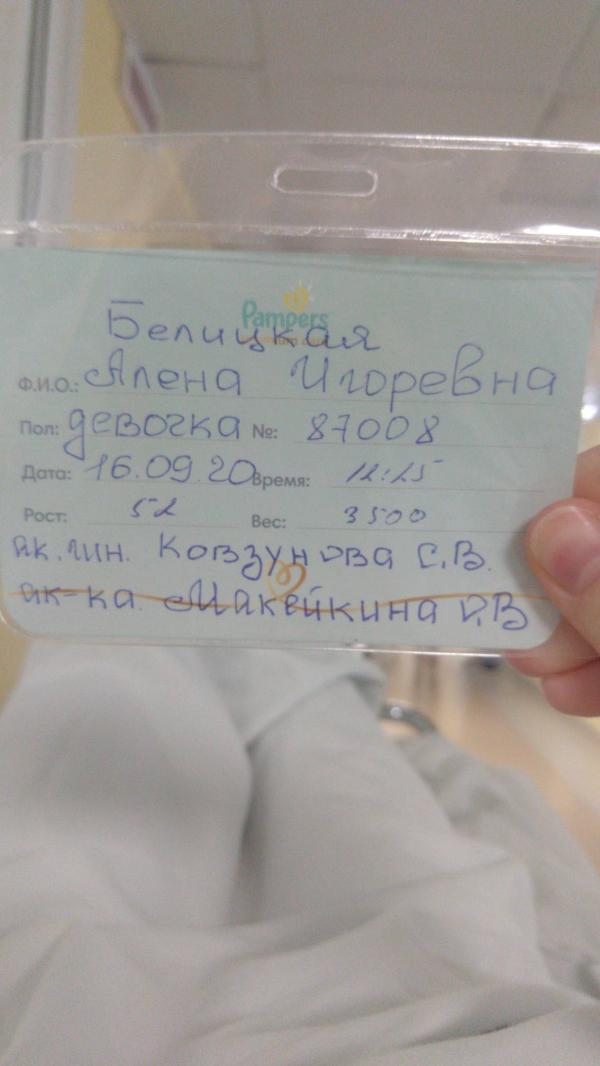 Pampers
Белицкая
Ф.И.О.: Алена Игоревна
Пол: девочка №: 87008
Дата: 16.09.20 Время: 12:25
Рост: 52 Вес: 3500
ак. гин. Ковзунова С.В.
ак-ка. Макейкина О.В